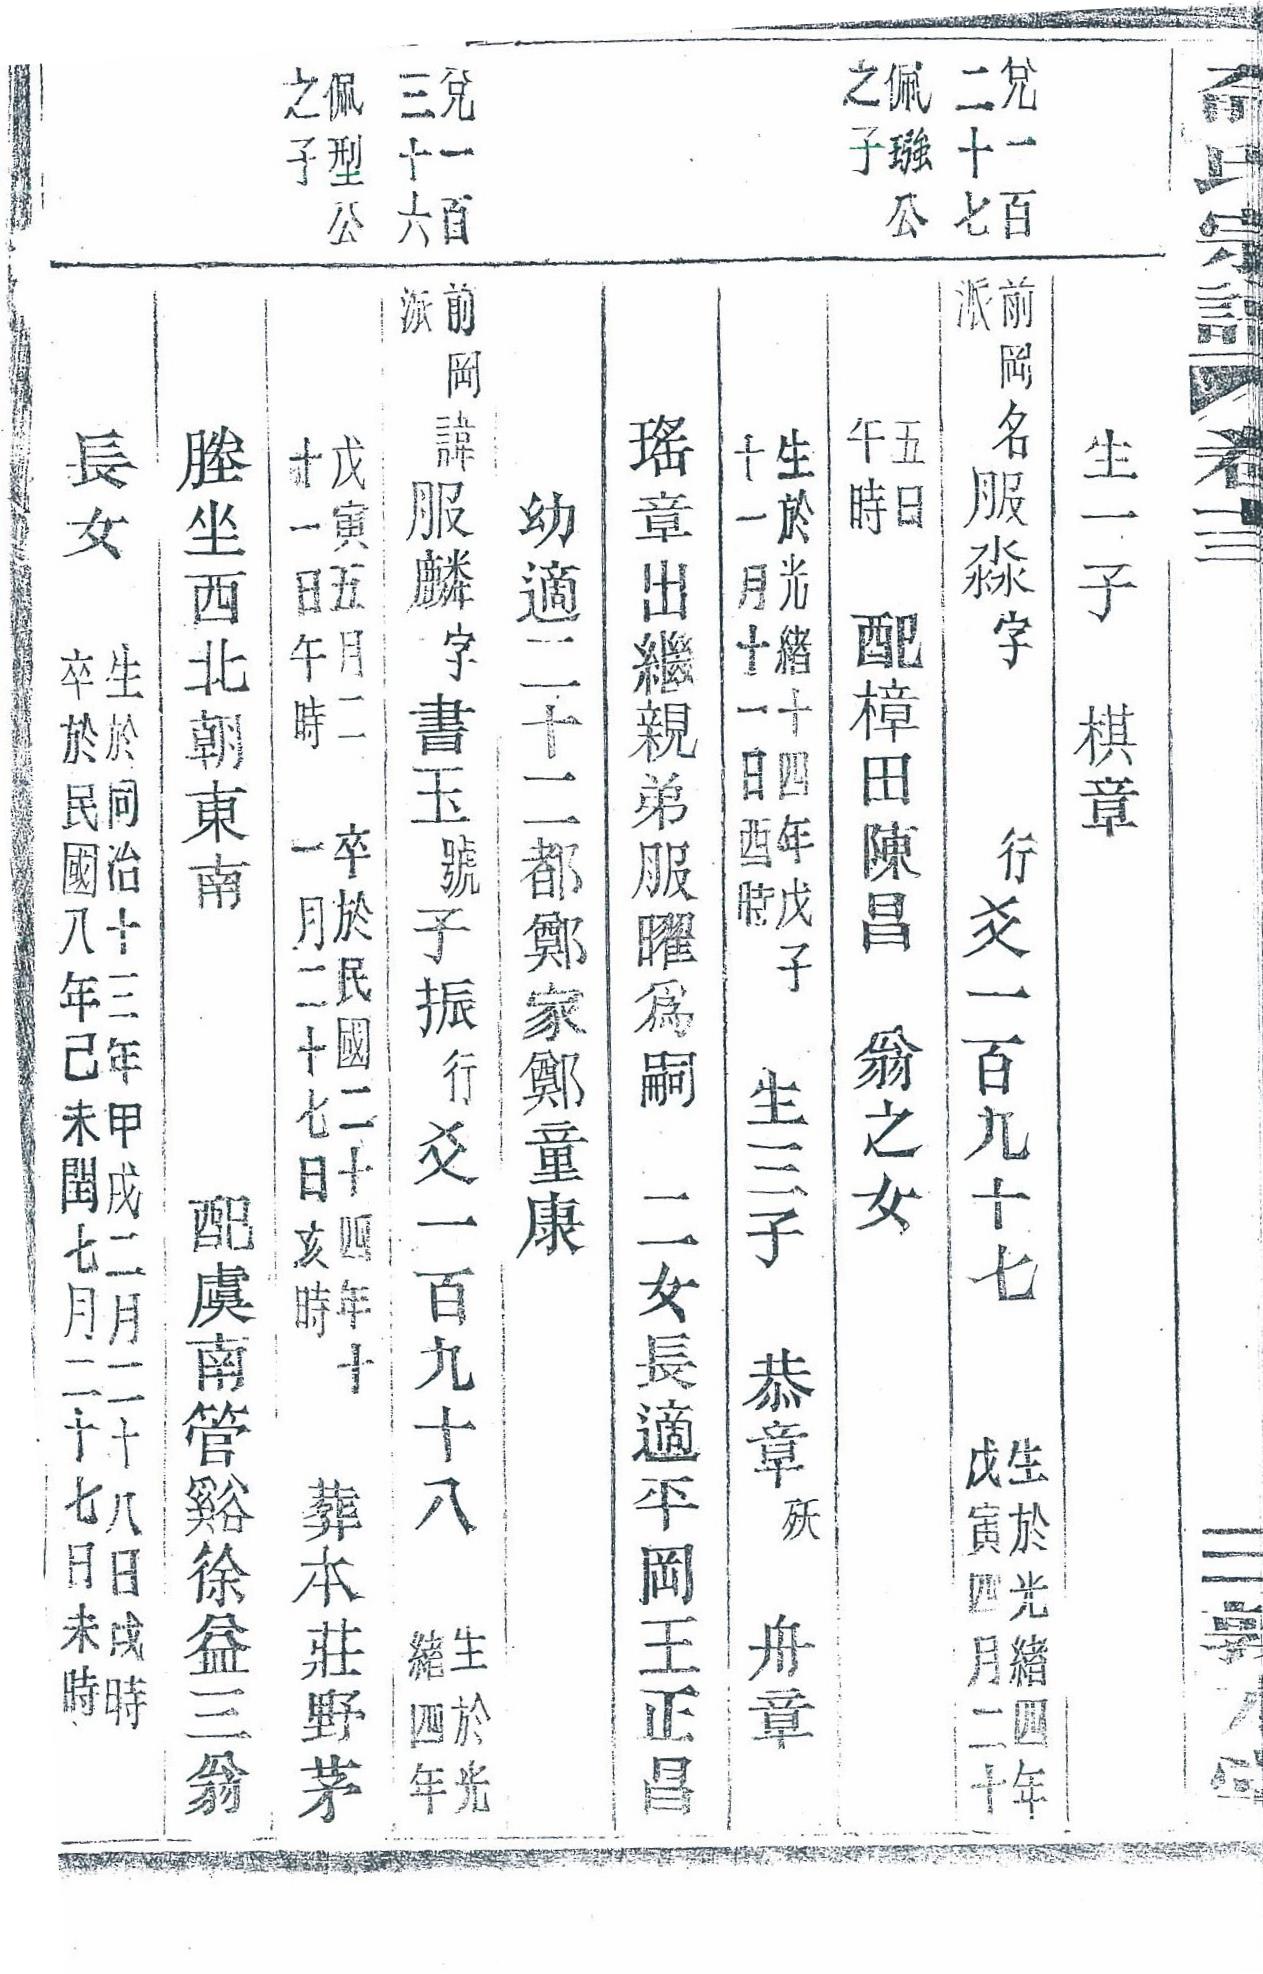 俞氏宗譜 卷三
生一子 棋章
兌一百二十七
佩璣公之子
前岡派
名服淼字 行爻一百九十七
生於光緒四年戊寅四月二十
五日午時
配樟田陳昌翁之女
生於光緒十四年戊子十一月十一日酉時
生三子 恭章殀 舟章
瑤章出繼親弟服曜爲嗣 二女長適平岡王正昌
幼適二十二都鄭家鄭童康
兌一百三十六
佩型公之子
前岡派
諱服麟字書玉號子振行爻一百九十八
生於光緒四年
戊寅五月二十一日午時
卒於民國二十四年十一月二十七日亥時
葬本莊野茅
塍坐西北朝東南 配虞南管谿徐益三翁
長女
生於同治十三年甲戌二月二十八日戌時
卒於民國八年己未閏七月二十七日未時